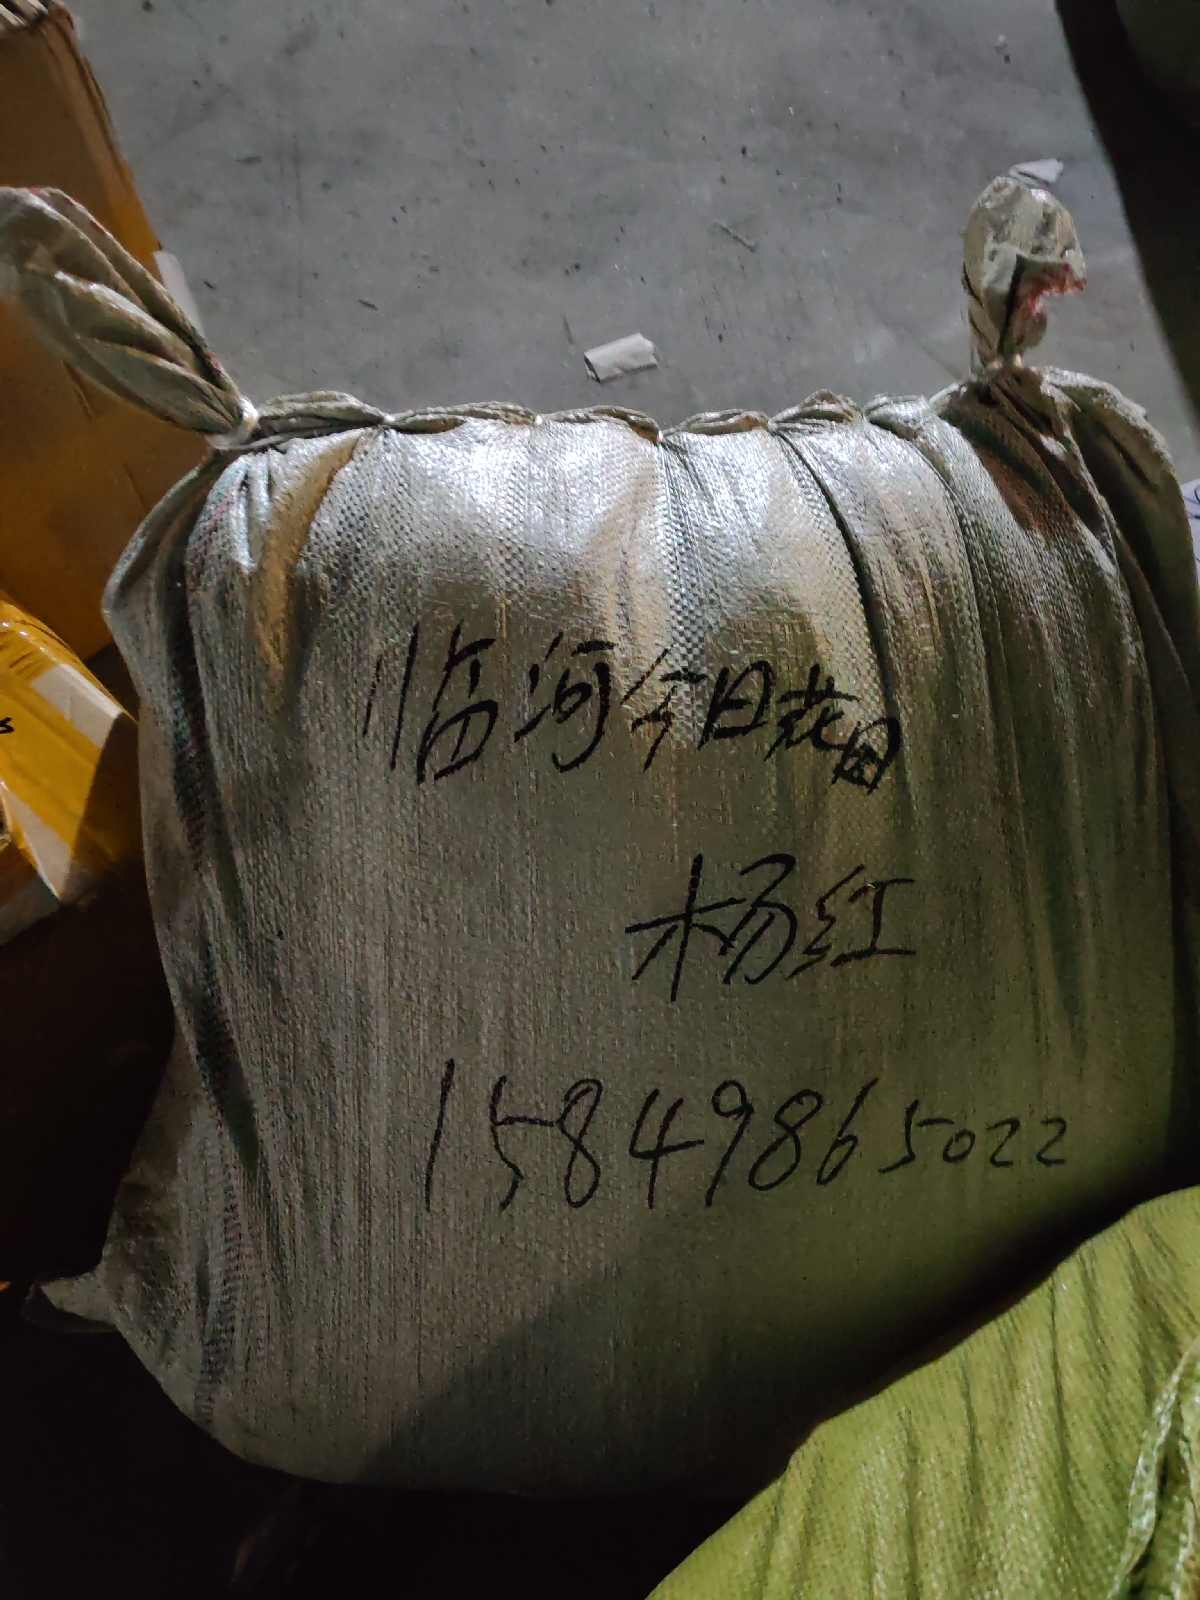 临河今日花田
杨红
15849865022